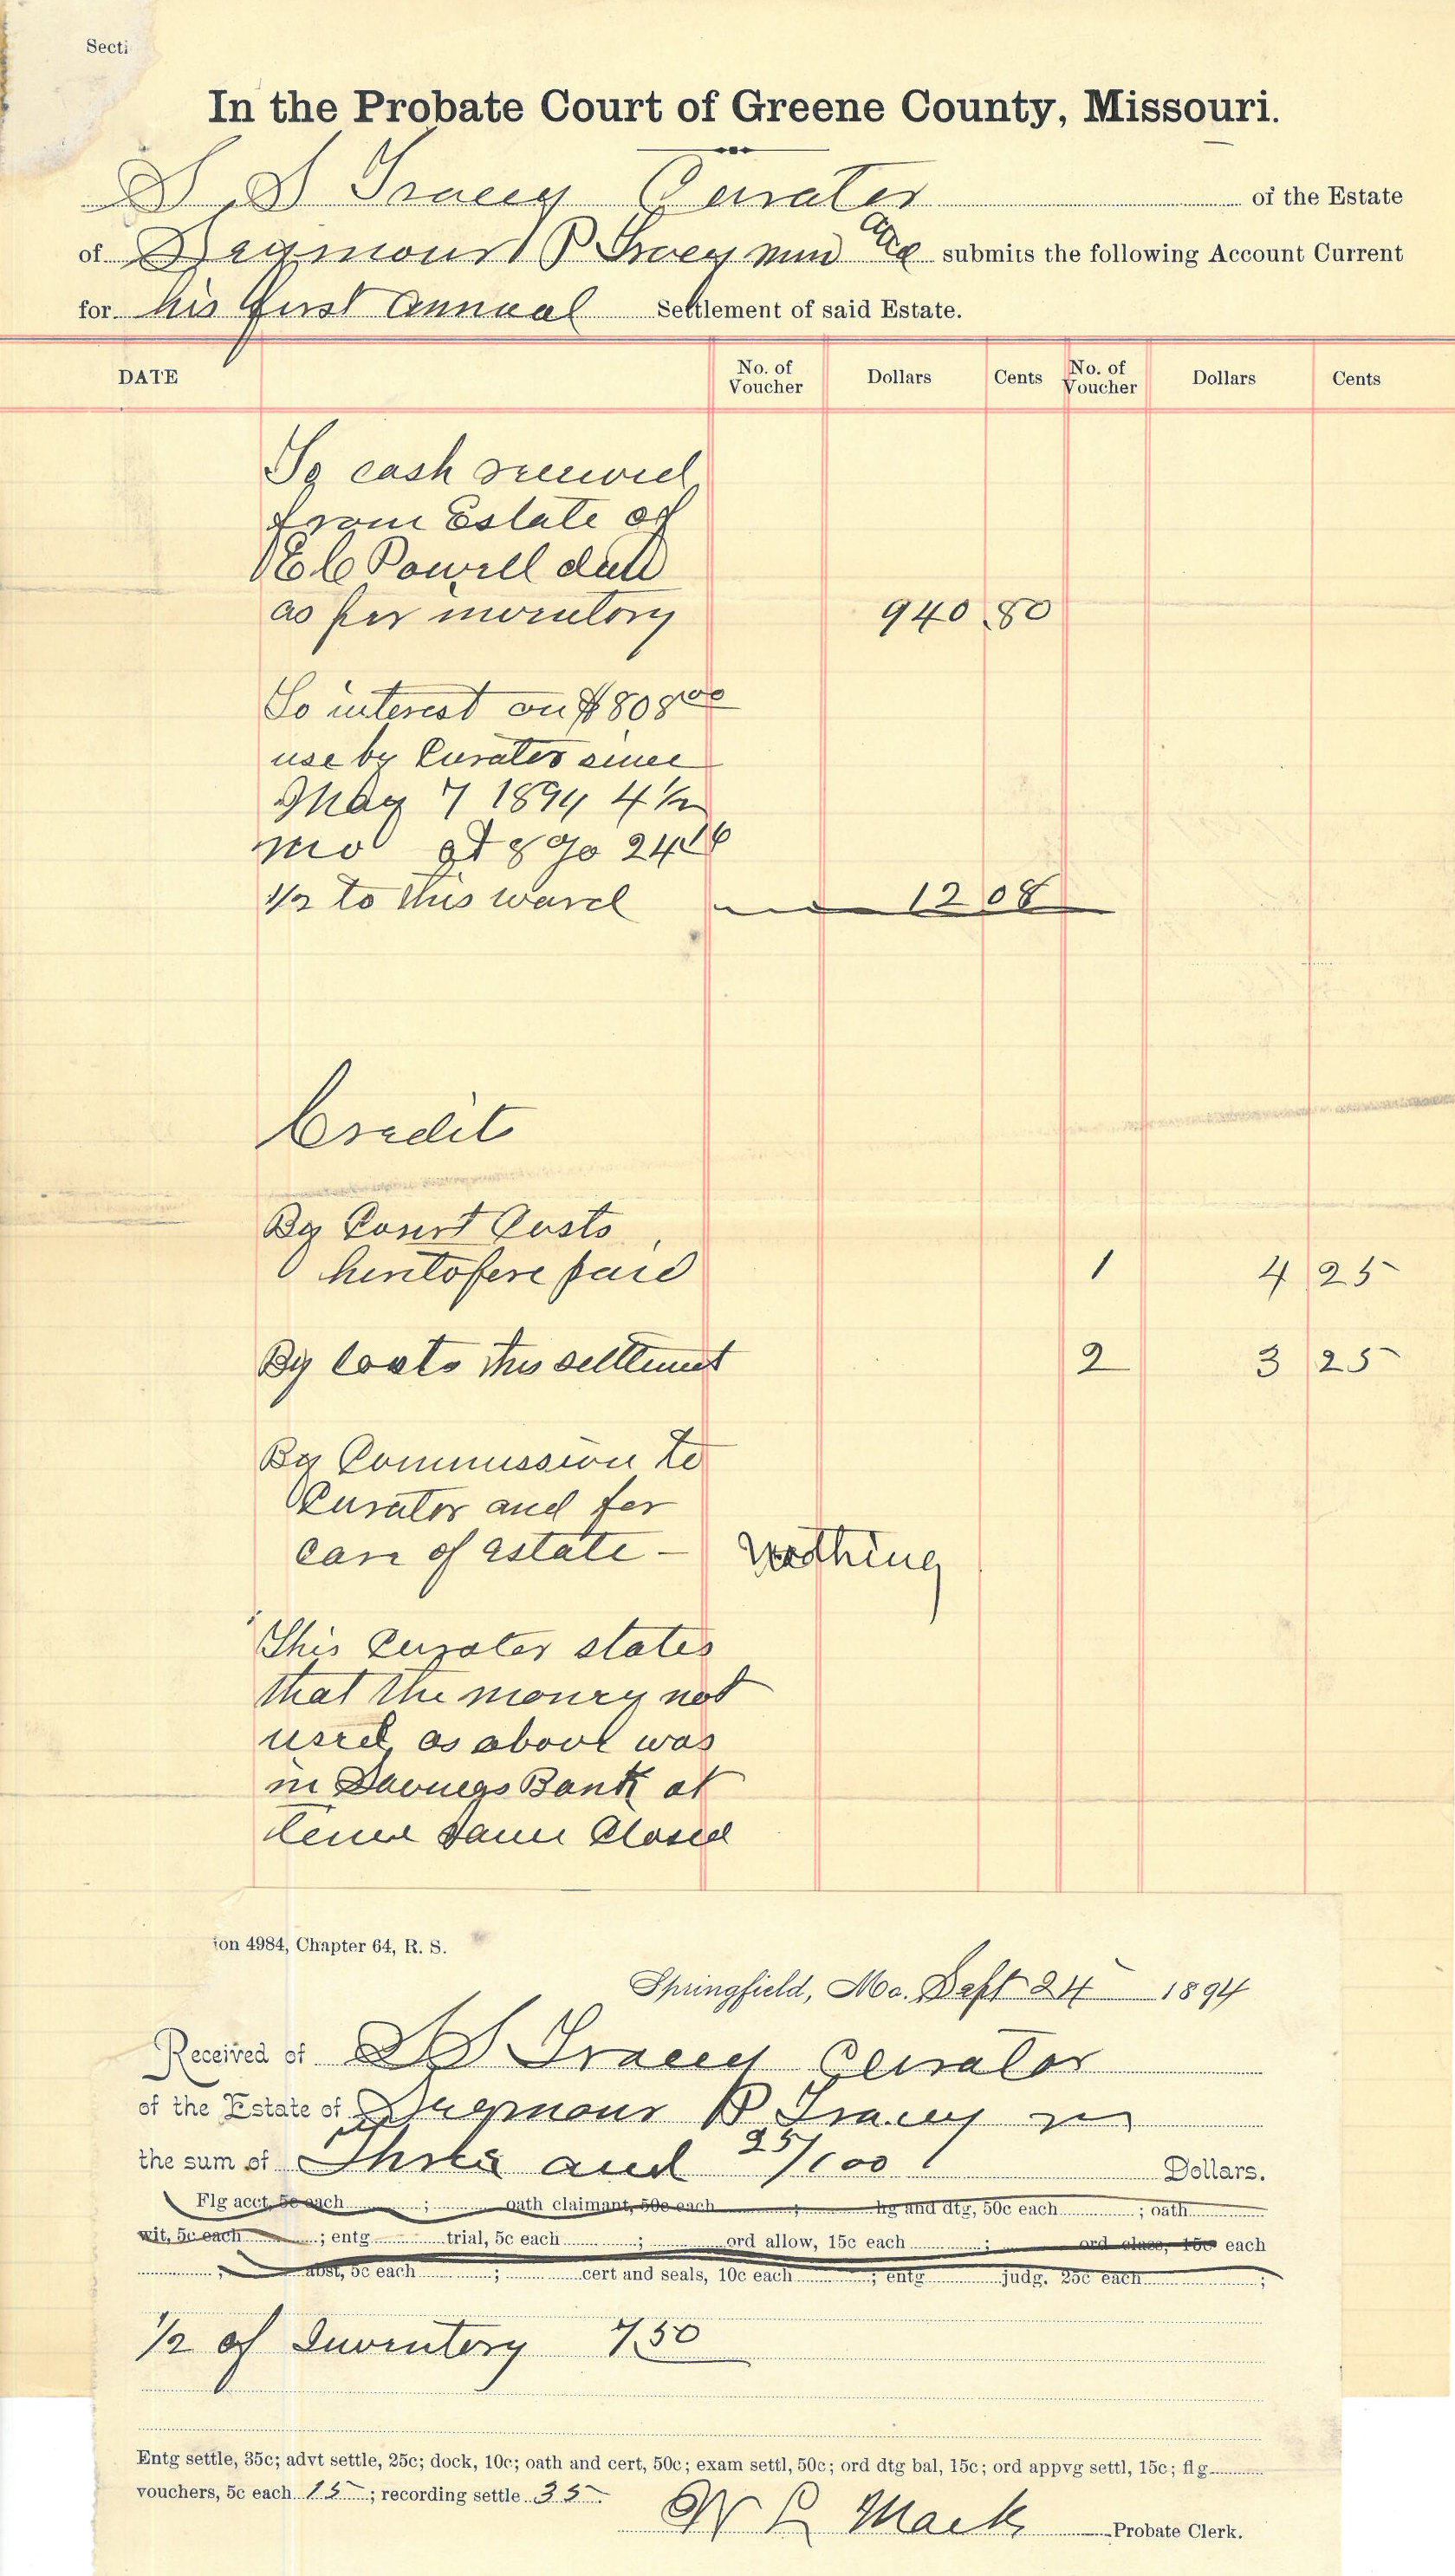 Secti
In the Probate Court of Greene County, Missouri.
S S Tracey Curator of the Estate
of Seymour P Tracey min and submits the following Account Current
for his first annual Settlement of said Estate.
DATE No. of Voucher Dollars Cents No. of Voucher Dollars Cents
To cash received
from Estate of
E C Powell decd
as per inventory 940.80
To interest on $808 00
use by Curator since
May 7 1894 4 1/2
mo at 8 % 24 16
1/2 to this ward 12 08
Credit
By Court Costs
heretofore paid 1 4 25
By Costs this settlement 2 3 25
By Commission to
Curator and for
care of estate - Nothing
This Curator states
that the money not
used as above was
in Savings Bank at
time same Closed
ion 4984, Chapter 64, R. S.
Springfield, Mo. Sept 24 1894
Received of S S Tracey Curator
of the Estate of Seymour P Tracey m
the sum of Three and 25/100 Dollars.
Flg acct, 5c each ; oath claimant, 50c each ; hg and dtg, 50c each ; oath
wit, 5c each ; entg trial, 5c each ; ord allow, 15c each ; ord class, 15c each
; abst, 5c each ; cert and seals, 10c each ; entg judg. 25c each ;
1/2 of Inventory 7.50
Entg settle, 35c; advt settle, 25c; dock, 10c; oath and cert, 50c; exam settl, 50c; ord dtg bal, 15c; ord appvg settl, 15c; flg
vouchers, 5c each 15 ; recording settle 35.
W L Mack Probate Clerk.